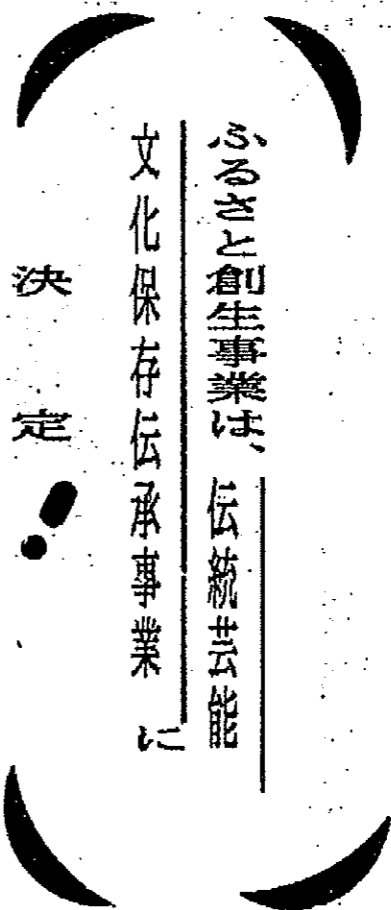 ふるさと創生事業は、伝統芸能
文化保存伝承事業に
決定!